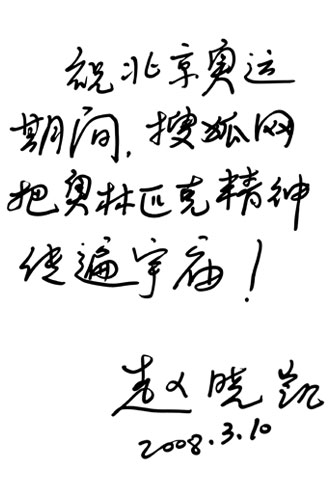 祝北京奥运
期间,搜狐网
把奥林匹克精神
传遍宇宙!
赵晓凯
2008.3.10